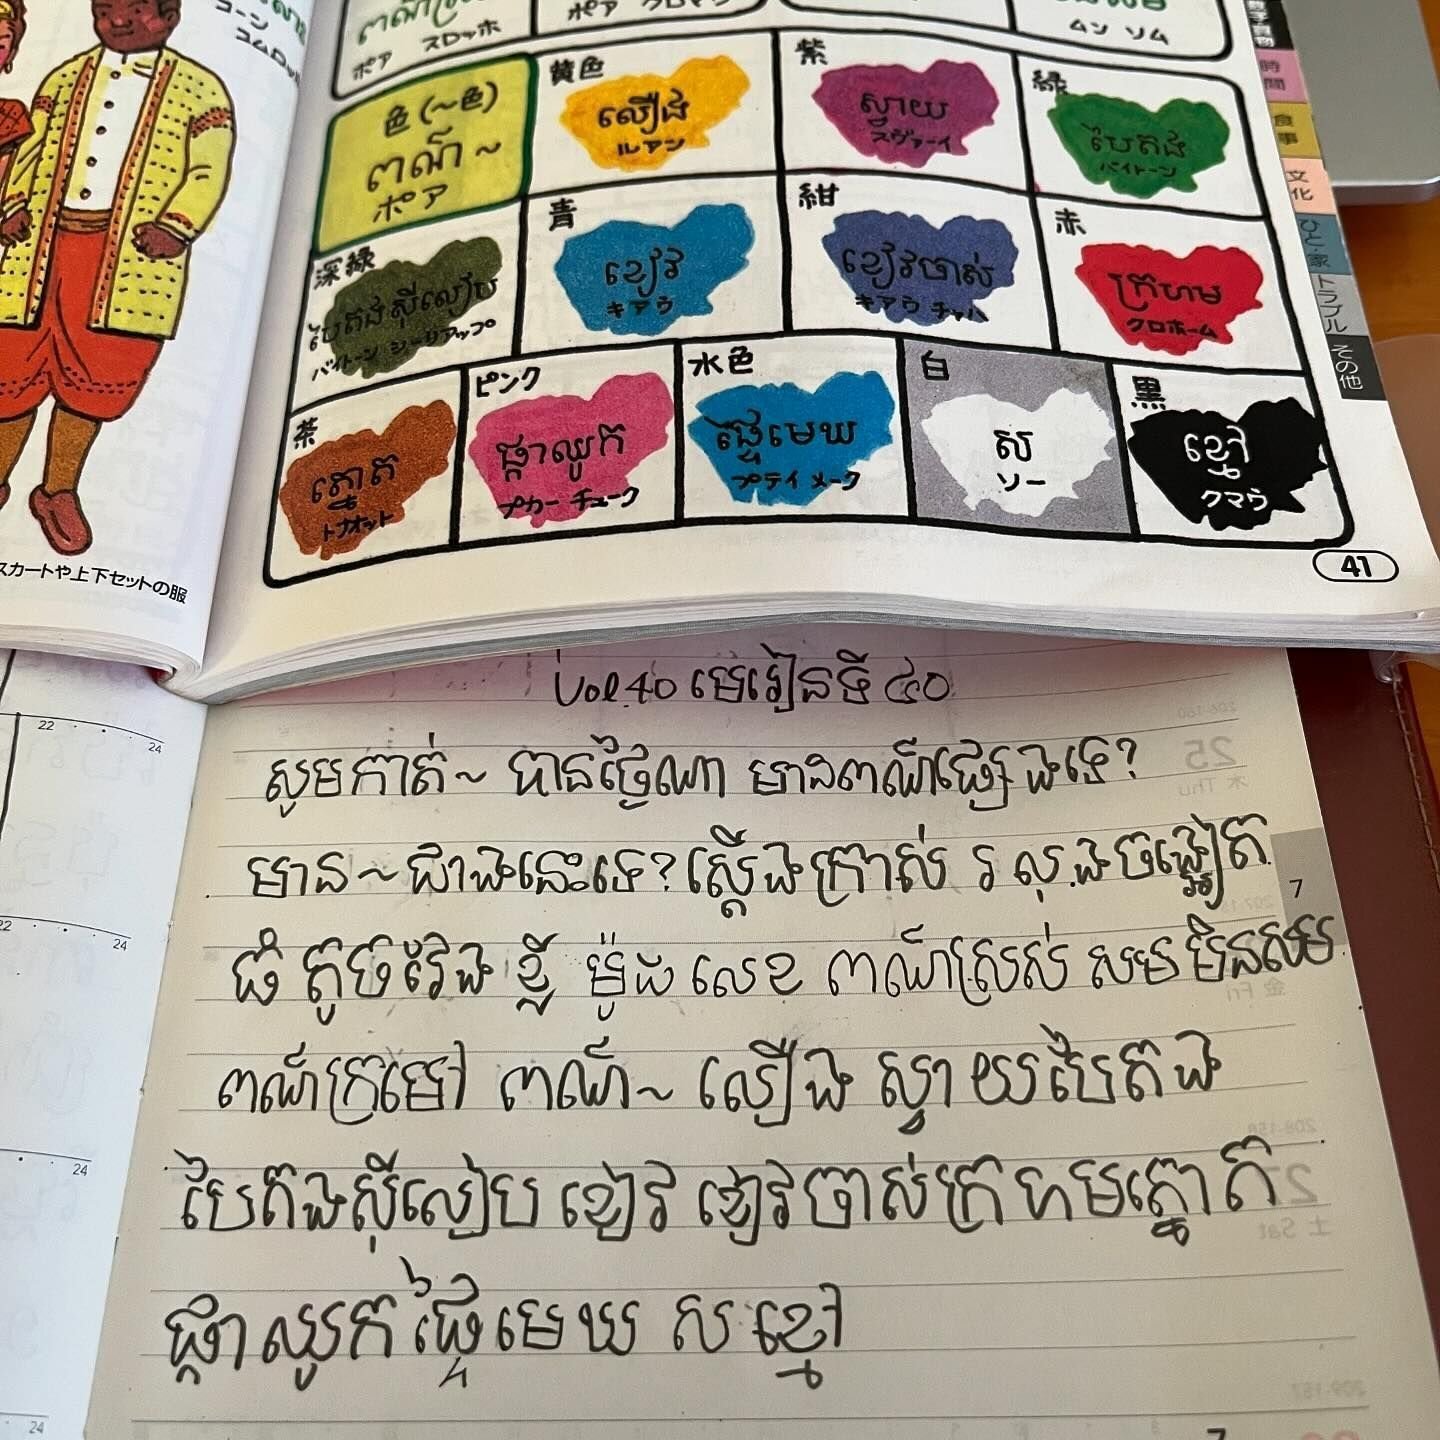 コーン
コムロッ
スカートや上下セットの服
ពណ៌ស្រស់
ポア スロッホ
ポア クロマウ
ムン ソム
色(~色)
ពណ៌ ~
ポア
黄色
លឿង
ルアン
紫
ស្វាយ
スヴァーイ
緑
បៃតង
バイトーン
深緑
បៃតងស៊ីលៀប
バイトーン シーリアップ
青
ខៀវ
キアウ
紺
ខៀវចាស់
キアウ チャハ
赤
ក្រហម
クロホーム
茶
ត្នោត
トナオット
ピンク
ផ្កាឈូក
プカー チューク
水色
ផ្ទៃមេឃ
プティ メーク
白
ស
ソー
黒
ខ្មៅ
クマウ
41
時間
食事
文化
ひと・家
トラブル
その他
Vol.40 មេរៀនទី ៤០
សូមកាត់~ បានថ្ងៃណា មានពណ៌ផ្សេងទេ?
មាន~ជាងនេះទេ? ស្តើង ក្រាស់ រលុង ចង្អៀត
ធំ តូច វែង ខ្លី ម៉ូដ លេខ ពណ៌ស្រស់ សម មិនសម
ពណ៌ក្រមៅ ពណ៌~ លឿង ស្វាយ បៃតង
បៃតងស៊ីលៀប ខៀវ ខៀវចាស់ ក្រហម ត្នោត
ផ្កាឈូក ផ្ទៃមេឃ ស ខ្មៅ
22
24
22
24
22
24
7
25
木 Thu
金 Fri
土 Sat
7